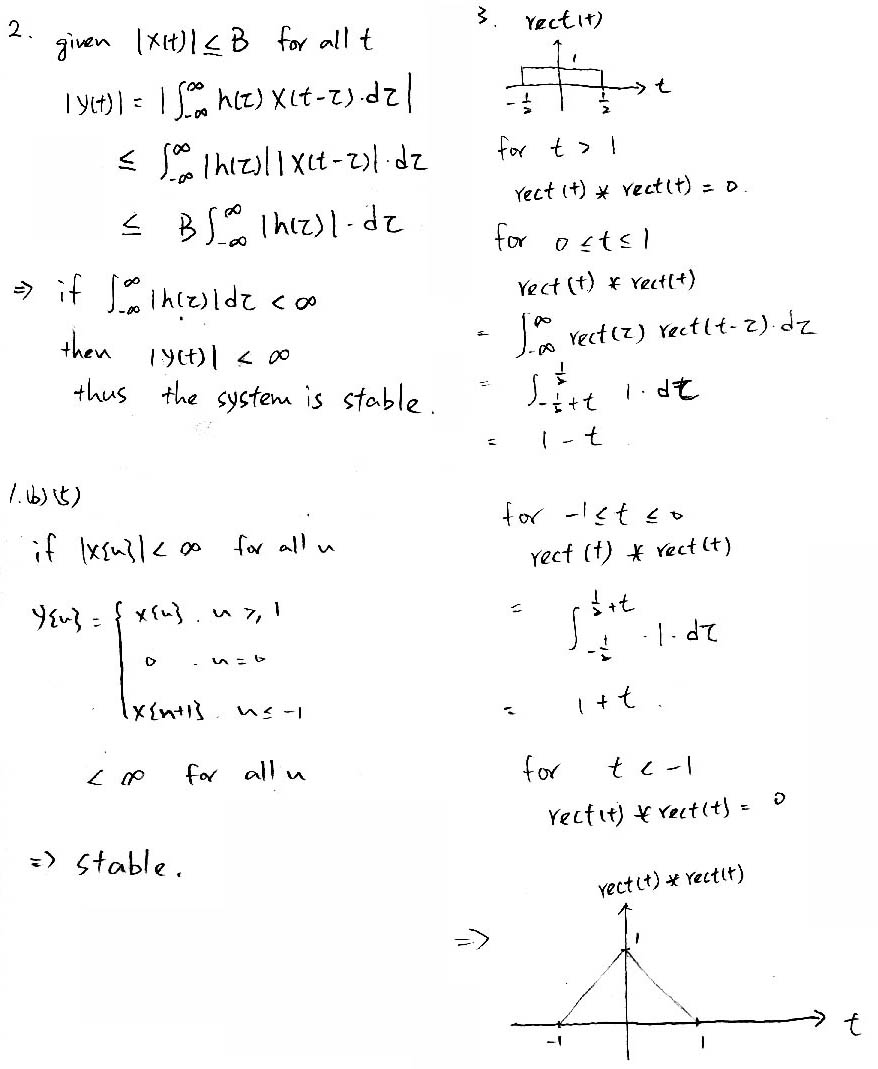 2. given |x(t)| ≤ B for all t
|y(t)| = |∫_{-∞}^{∞} h(τ) x(t-τ)·dτ|
≤ ∫_{-∞}^{∞} |h(τ)||x(t-τ)|·dτ
≤ B∫_{-∞}^{∞} |h(τ)|·dτ
⇒ if ∫_{-∞}^{∞} |h(τ)|dτ < ∞
then |y(t)| < ∞
thus the system is stable.
1.(b)(5)
if |x[n]| < ∞ for all n
y[n] = { x[n] . n ≥ 1
0 . n = 0
x[n+1] . n ≤ -1
< ∞ for all n
=> stable.
3. rect(t)
1
t
-1/2 1/2
for t > 1
rect(t) * rect(t) = 0.
for 0 ≤ t ≤ 1
rect(t) * rect(t)
= ∫_{-∞}^{∞} rect(τ) rect(t-τ)·dτ
= ∫_{-1/2+t}^{1/2} 1·dτ
= 1 - t
for -1 ≤ t ≤ 0
rect(t) * rect(t)
= ∫_{-1/2}^{1/2+t} ·1·dτ
= 1 + t .
for t < -1
rect(t) * rect(t) = 0
rect(t) * rect(t)
=>
1
t
-1 1